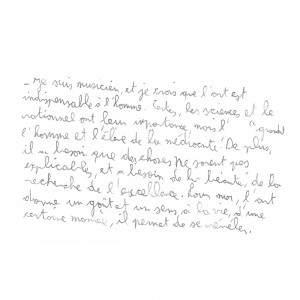 - Je suis musicien, et je crois que l'art est
indispensable à l'homme. Certes, les sciences et le
rationnel ont leur importance, mais l' grandit
l'homme et l'élève de la médiocrité. De plus,
il a besoin que des choses ne soient pas
explicables, et a besoin de la beauté, de la
recherche de l'excellence. Pour moi, l'art
donne un goût et un sens à la vie, d'une
certaine manière, il permet de se révéler.